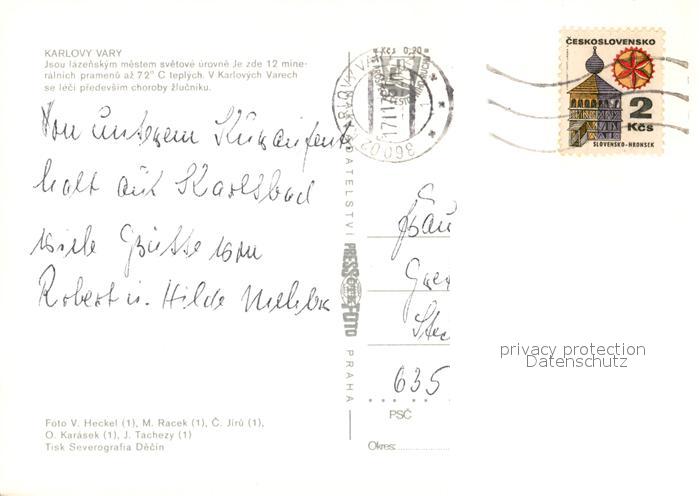 KARLOVY VARY
Jsou lázeňským městem světové úrovně Je zde 12 mine-
rálních pramenů až 72° C teplých. V Karlových Varech
se léčí především choroby žlučníku.
Von unserem Kuraufent
halt aus Karlsbad
viele Grüsse von
Robert u. Hilde
Foto V. Heckel (1), M. Racek (1), Č. Jírů (1),
O. Karásek (1), J. Tachezy (1)
Tisk Severografia Děčín
PRESSFOTO
PRAHA
Kčs 0,90
KARLOVY VARY
360 02
ČESKOSLOVENSKO
2
Kčs
SLOVENSKO-HRONSEK
Frau
635
PSČ
Okres:
privacy protection
Datenschutz